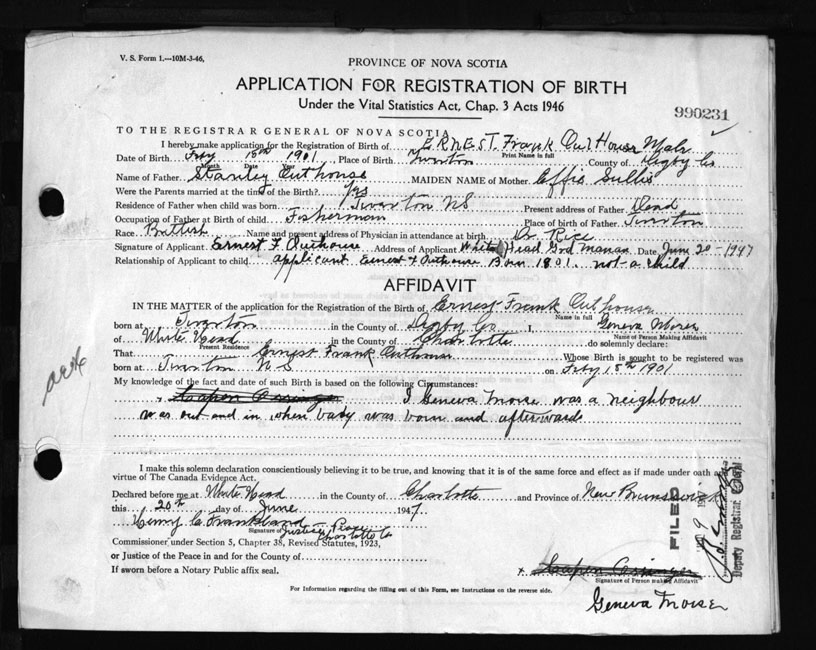 V. S. Form 1.—10M-3-46,
PROVINCE OF NOVA SCOTIA
APPLICATION FOR REGISTRATION OF BIRTH
Under the Vital Statistics Act, Chap. 3 Acts 1946
990231
TO THE REGISTRAR GENERAL OF NOVA SCOTIA
I hereby make application for the Registration of Birth of ERNEST Frank OutHouse Male
Print Name in full
Date of Birth Feby 15th 1901 Place of Birth Tiverton County of Digby Co
Month Date Year
Name of Father Stanley Outhouse MAIDEN NAME of Mother Effie Sullis
Were the Parents married at the time of the Birth? Yes
Residence of Father when child was born Tiverton NS Present address of Father Dead
Occupation of Father at Birth of child Fisherman Place of birth of Father Tiverton
Race British Name and present address of Physician in attendance at birth Dr Rice
Signature of Applicant Ernest F Outhouse Address of Applicant White Head Grd Manan Date June 20-1947
Relationship of Applicant to child applicant Ernest F Outhouse Born 1901 not a child
AFFIDAVIT
IN THE MATTER of the application for the Registration of the Birth of Ernest Frank Outhouse
Name in full
born at Tiverton in the County of Digby Co I, Geneva Morse
Name of Person Making Affidavit
of White Head in the County of Charlotte do solemnly declare:
Present Residence
That Ernest Frank Outhouse Whose Birth is sought to be registered was
born at Tiverton N S on Feby 15th 1901
My knowledge of the fact and date of such Birth is based on the following Circumstances:
I Geneva Morse was a neighbour
was out and in when baby was born and afterwards
I make this solemn declaration conscientiously believing it to be true, and knowing that it is of the same force and effect as if made under oath
virtue of The Canada Evidence Act.
Declared before me at White Head in the County of Charlotte and Province of New Brunswick
this 20th day of June 1947
Henry C Frankland
Signature of Justice Peace
Charlotte Co
Commissioner under Section 5, Chapter 38, Revised Statutes, 1923,
or Justice of the Peace in and for the County of
If sworn before a Notary Public affix seal.
Signature of Person making Affidavit
For Information regarding the filling out of this Form, see Instructions on the reverse side.
Geneva Morse
FILED
Deputy Registrar General